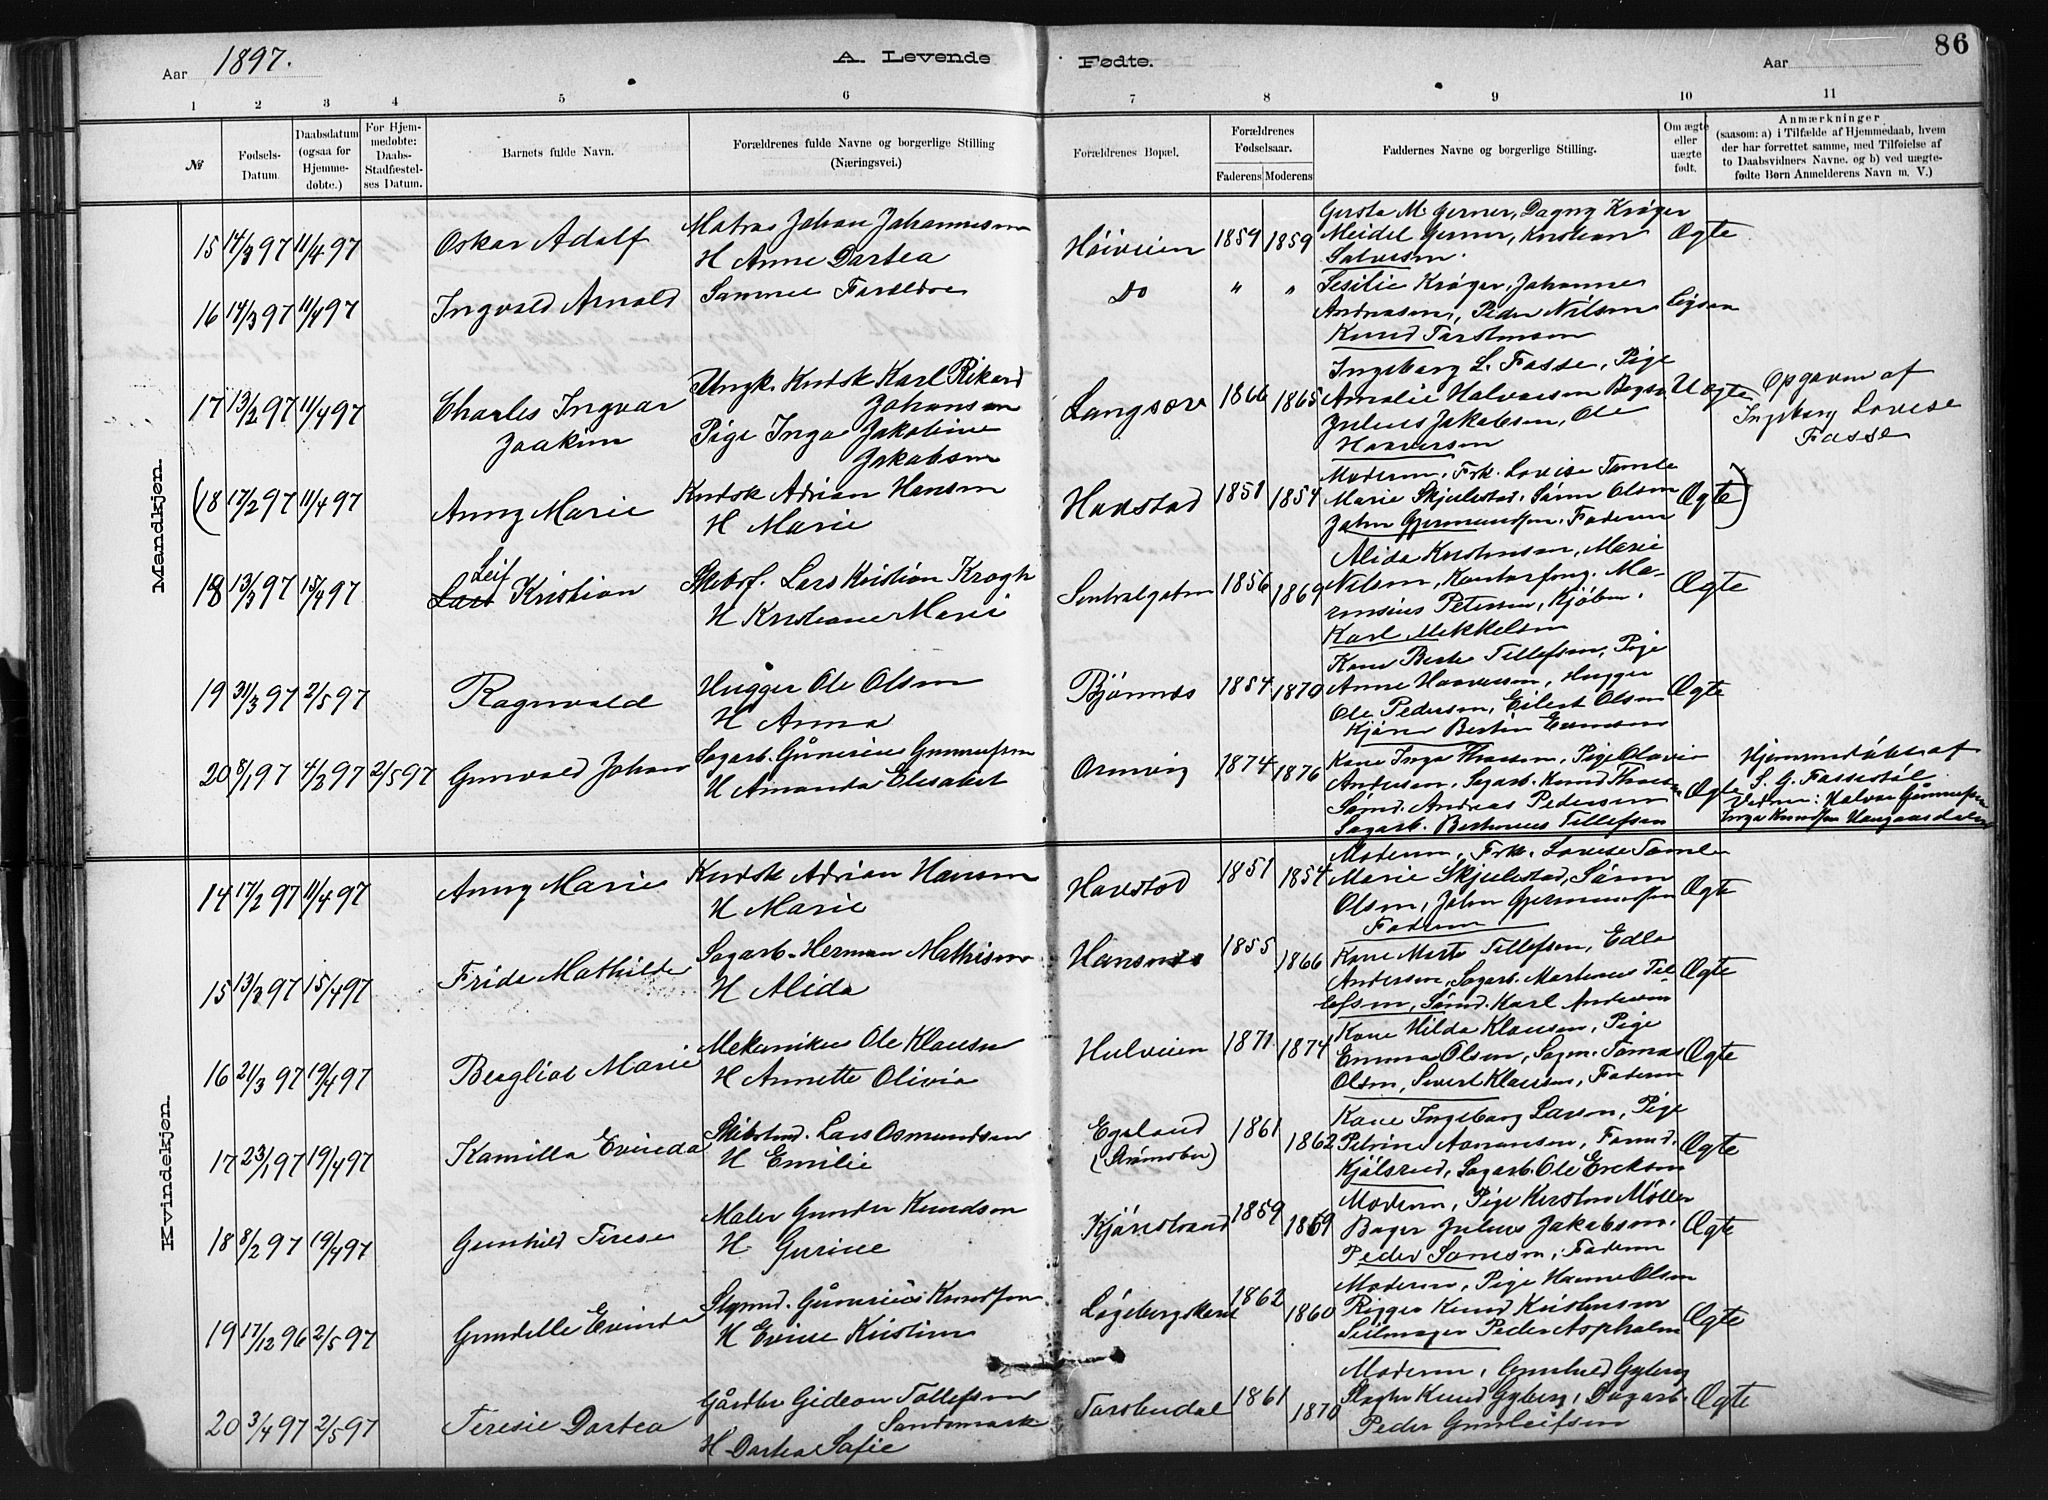 Aar 1897.
A. Levende Fødte.
Aar
86
1 2 3 4 5 6 7 8 9 10 11
№
Fødsels-Datum.
Daabsdatum (ogsaa for Hjemmedøbte.)
For Hjemmedøbte: Daabs-Stadfæstelses Datum.
Barnets fulde Navn.
Forældrenes fulde Navne og borgerlige Stilling (Næringsvei.)
Forældrenes Bopæl.
Forældrenes Fødselsaar.
Faderens Moderens
Faddernes Navne og borgerlige Stilling.
Om ægte eller uægte født.
Anmærkninger
(saasom: a) i Tilfælde af Hjemmedaab, hvem der har forrettet samme, med Tilføielse af to Daabsvidners Navne. og b) ved uægtefødte Børn Anmelderens Navn m. V.)
Mandkjøn.
15 14/3 97 11/4 97 Oskar Adolf
Matros Johan Johannesen
H Anne Dortea
Høiveien 1859 1859
Gersta M. Gerner, Dagny Krøger
Meidel Gerner, Kristian
Salvesen.
Ægte
16 14/3 97 11/4 97 Ingvald Arnold
Samme Forældre
Do " "
Sesilie Krøger, Johanne
Andreasen, Peder Nilsen
Knud Torstensen
ligsaa
17 13/2 97 11/4 97 Charles Ingvar
Joakim
Ungk. Kndsk Karl Rikard
Johansen
Pige Inga Jakobine
Jakobsen
Langsæv 1866 1865
Ingeborg L. Fosse, Pige
Amalie Halvorsen Bager
Julius Jakobsen, Ole
Haaversen
Uægte
Opgaven af
Ingeborg Lovise
Fosse
(18 17/2 97 11/4 97 Anny Marie
Kndsk Adrian Hansen
H Marie
Havstad 1851 1854
Moderen, Frk. Lovise Tomle
Marie Skjulestad, Søren Olsen
John Gjermundsen, Faderen
Ægte)
18 13/3 97 15/4 97 Leif
Lars Kristian
Skibsf. Lars Kristian Krogh
H Kristiane Marie
Sentralgaten 1856 1869
Alida Kristensen, Marie
Nilsen, Kontorfung. Ma-
rensius Petersen, Kjøbm.
Karl Mikkelsen
Ægte
19 31/3 97 2/5 97 Ragnvald
Hugger Ole Olsen
H Anna
Bjønnes 1854 1870
Kone Berte Tellefsen, Pige
Anne Haaversen, Hugger
Ole Pedersen, Eilert Olsen
Kjøre Bertin Evensen
Ægte
20 8/1 97 4/3 97 2/5 97 Gunvald Johan
Sagarb. Gunerius Gunnufsen
H Amanda Elisabet
Ormvig 1874 1876
Kone Inga Thorsen, Pige Olavia
Andersen, Sagarb. Knud Thorsen
Sømd. Andreas Pedersen
Sagarb. Bertinius Tellefsen
Ægte
Hjemmedøbt af
S. G. Fossestøl
Vidner: Halvor Gunnufsen
Inga Knudsen Haugaasdalen
Kvindekjøn.
14 17/2 97 11/4 97 Anny Marie
Kndsk Adrian Hansen
H Marie
Havstad 1851 1854
Moderen, Frk. Lovise Tomle
Marie Skjulestad, Søren
Olsen, John Gjermundsen
Faderen
Ægte
15 13/3 97 15/4 97 Frida Mathilde
Sagarb. Herman Mathisen
H Alida
Hansnes 1855 1866
Kone Marte Tellefsen, Edle
Andersen, Sagarb. Martinius Tel-
lefsen, Sømd. Karl Andersen
Ægte
16 21/3 97 19/4 97 Bergliot Marie
Mekaniker Ole Klausen
H Annette Olivia
Hulveien 1871 1874
Kone Hilda Klausen, Pige
Emma Olsen, Sagm. Tomas
Olsen, Sivert Klausen, Faderen
Ægte
17 23/1 97 19/4 97 Kamilla Evinda
Skibstmd. Lars Osmundsen
H Emilie
Egeland
(Strømsbu) 1861 1862
Kone Ingeborg Larsen, Pige
Petrine Aamansen, Tømd.
Kjølsrud, Sagarb. Ole Eriksen
Ægte
18 8/2 97 19/4 97 Gunhild Terese
Maler Gunder Knudsen
H Gurine
Kjønstrand 1859 1869
Moderen, Pige Kirstine Møller
Bager Julius Jakobsen,
Peder Sørensen, Faderen
Ægte
19 17/12 96 2/5 97 Gundelle Evinda
Stgmd. Gunerius Knudsen
H Evine Kristine
Løgebergskaret 1862 1860
Moderen, Pige Hanne Olsen
Rigger Knud Kristensen
Seilmager Peder Aspholm
Ægte
20 3/4 97 2/5 97 Teresie Dortea
Gårdbr Gideon Tollefsen
Sandemark
H Dortea Sofie
Torsbudal 1861 1870
Moderen, Gunhild Gyberg
Slagter Knud Gyberg, Dagarb.
Peder Gunleifsen
Ægte